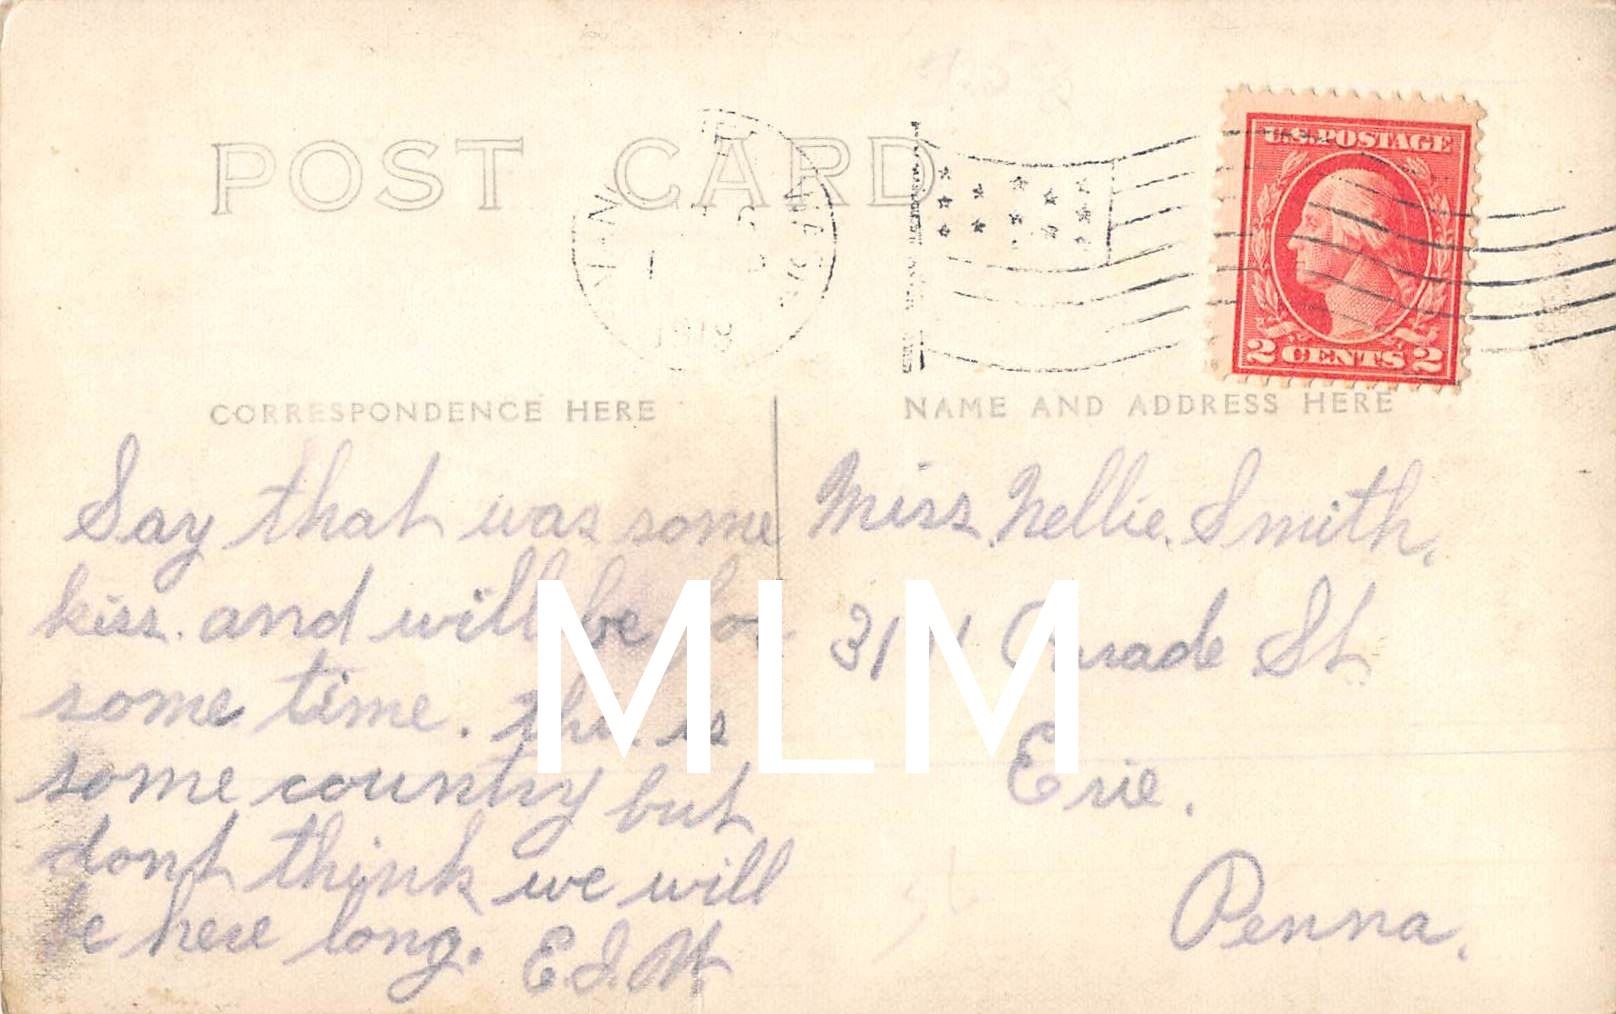 POST CARD
JAN
1
1918
U.S. POSTAGE
2 CENTS 2
CORRESPONDENCE HERE
NAME AND ADDRESS HERE
Say that was some
kiss. and will be for
some time. this is
some country but
dont think we will
be here long. E.J.W.
Miss Nellie Smith,
Parade St
Erie.
Penna.
MLM